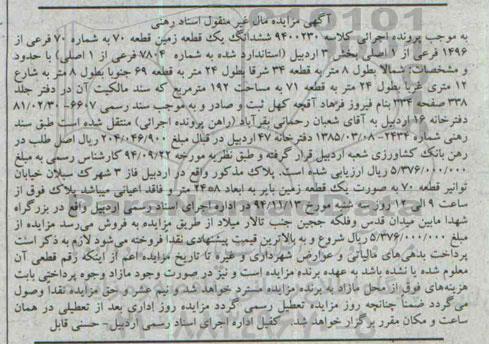 آگهی مزایده مال غیر منقول اسناد رهنی
به موجب پرونده اجرائی کلاسه ۹۴۰۰۲۳۰ ششدانگ یک قطعه زمین قطعه ۷۰ به شماره ۷۰ فرعی از
۱۴۹۶ فرعی از ۱ اصلی بخش ۳ اردبیل (استاندارد شده به شماره ۷۸۰۴ فرعی از ۱ اصلی) با حدود
و مشخصات: شمالا بطول ۸ متر به قطعه ۳۴ شرقا بطول ۲۴ متر به قطعه ۶۹ جنوبا بطول ۸ متر به شارع
۱۲ متری غربا بطول ۲۴ متر به قطعه ۷۱ به مساحت ۱۹۲ مترمربع که سند مالکیت آن در دفتر جلد
۳۳۸ صفحه ۲۳۴ بنام فیروز فرهاد آقچه کهل ثبت و صادر و به موجب سند رسمی ۶۶۰۷-۸۱/۰۲/۳۰
دفترخانه ۱۶ اردبیل به آقای شعبان رحمانی بقرآباد (راهن پرونده اجرائی) منتقل شده است طبق سند
رهنی شماره ۲۴۳۴-۱۳۸۵/۰۳/۰۸ دفترخانه ۴۷ اردبیل در قبال مبلغ ۲۰۴/۰۴۶/۹۰۰ ریال اصل طلب در
رهن بانک کشاورزی شعبه اردبیل قرار گرفته و طبق نظریه مورخه ۹۴/۰۹/۲۲ کارشناس رسمی به مبلغ
۵/۳۷۶/۰۰۰/۰۰۰ ریال ارزیابی شده است. پلاک مذکور واقع در اردبیل فاز ۳ شهرک سبلان خیابان
توانیر قطعه ۷۰ به صورت یک قطعه زمین بایر به ابعاد ۸*۲۴ متر و فاقد اعیانی میباشد پلاک فوق از
ساعت ۹ الی ۱۲ روز سه شنبه مورخ ۹۴/۱۱/۱۳ در اداره اجرای اسناد رسمی اردبیل واقع در بزرگراه
شهدا مابین میدان قدس وفلکه ججین جنب تالار میلاد از طریق مزایده به فروش می‌رسد مزایده از
مبلغ ۵/۳۷۶/۰۰۰/۰۰۰ ریال شروع و به بالاترین قیمت پیشنهادی نقدا فروخته می‌شود لازم به ذکر است
پرداخت بدهی‌های مالیاتی و عوارض شهرداری و غیره تا تاریخ مزایده اعم از اینکه رقم قطعی آن
معلوم شده یا نشده باشد به عهده برنده مزایده است و نیز در صورت وجود مازاد وجوه پرداختی بابت
هزینه‌های فوق از محل مازاد به برنده مزایده مسترد خواهد شد و نیم عشر و حق مزایده نقدا وصول
می‌گردد ضمنا چنانچه روز مزایده تعطیل رسمی گردد مزایده روز اداری بعد از تعطیلی در همان
ساعت و مکان مقرر برگزار خواهد شد. کفیل اداره اجرای اسناد رسمی اردبیل- حسنی قابل